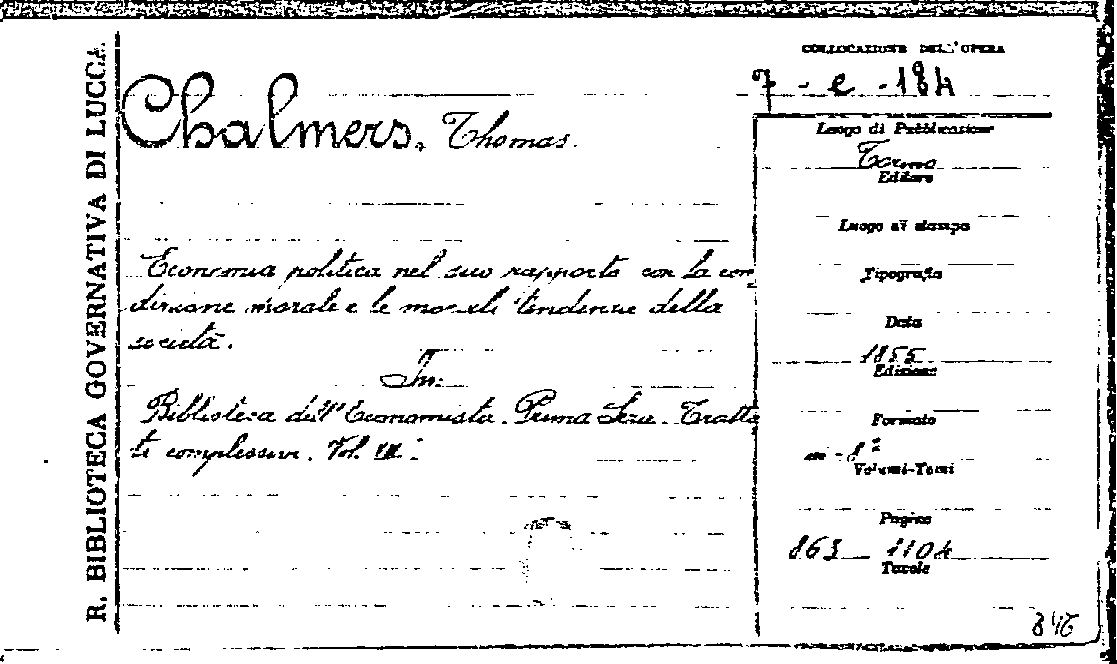 R. BIBLIOTECA GOVERNATIVA DI LUCCA.
Chalmers, Thomas.
Economia politica nel suo rapporto con la con
dizione morale e le morali tendenze della
società.
In:
Biblioteca dell'Economista. Prima Serie. Tratta
ti complessivi. Vol.
COLLOCAZIONE DELL'OPERA
7 - e - 184
Luogo di Pubblicazione
Torino
Editore
Luogo di stampa
Tipografia
Data
1855
Edizione
Formato
in - 8°
Volumi-Tomi
Pagine
863 1104
Tavole